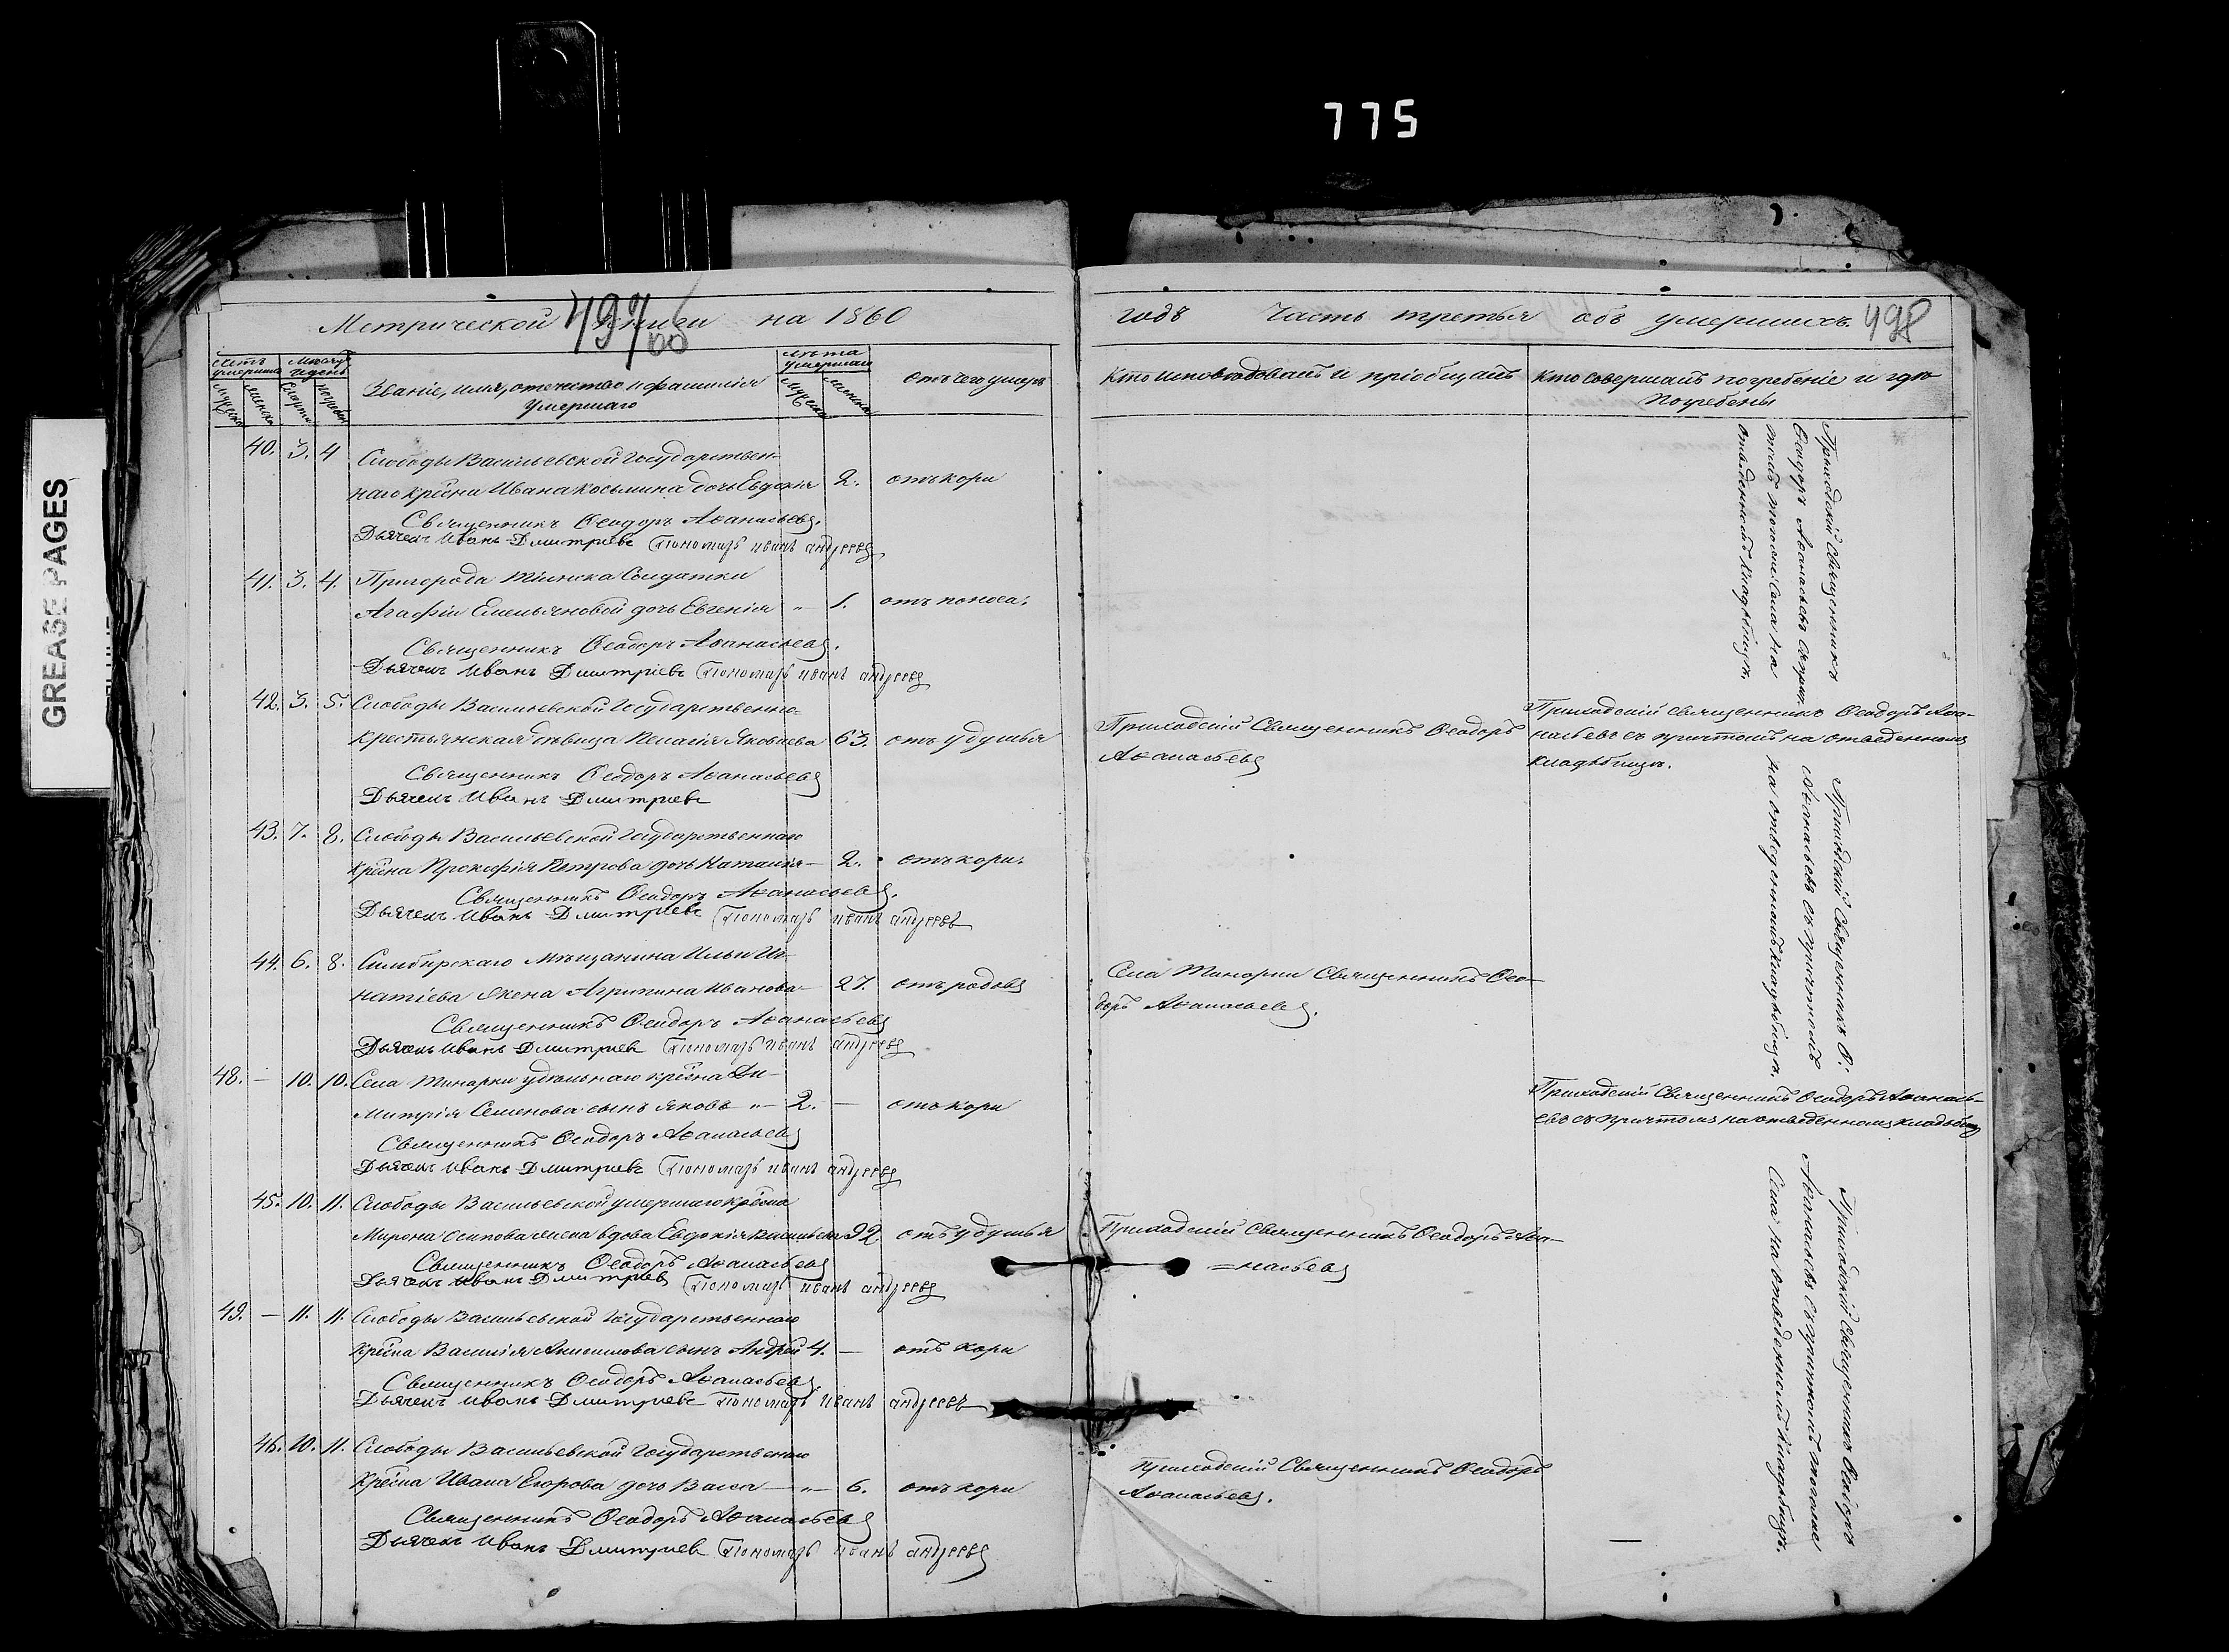 775
GREASE PAGES
Метрической книги на 1860
497
года Часть третья объ умершихъ.
498
Счетъ умершихъ
Мѣсяцъ и день
Званіе, имя, отчество и фамилія
умершаго
лѣта умершаго
отъ чего умеръ
Кто исповѣдовалъ и пріобщалъ
Кто совершалъ погребеніе и гдѣ
погребены
40. 3. 4 Слободы Васильевской Государствен-
наго крѣина Ивана Косьмина дочь Евдокія 2. отъ кори
Священникъ Ѳеодоръ Аѳанасьевъ.
Дьячекъ Иванъ Дмитріевъ Пономарь иванъ андреевъ
Приходскій священникъ
Ѳеодоръ Аѳанасьевъ съ прич-
томъ того же села на
отведенномъ кладбищѣ.
41. 3. 4. Пригорода Тіинска Солдатки
Агафіи Емельяновой дочь Евгенія „ 1. отъ поноса.
Священникъ Ѳеодоръ Аѳанасьевъ.
Дьячекъ Иванъ Дмитріевъ Пономарь иванъ андреевъ
42. 3. 5. Слободы Васильевской Государственно-
крестьянская дѣвица Пелагія Яковлева 63. отъ удушья
Священникъ Ѳеодоръ Аѳанасьевъ
Дьячекъ Иванъ Дмитріевъ
Приходскій Священникъ Ѳеодоръ
Аѳанасьевъ
Приходскій священникъ Ѳеодоръ Аѳа-
насьевъ съ причтомъ на отведенномъ
кладбищѣ.
43. 7. 8. Слободы Васильевской Государственнаго
крѣина Прокофія Петрова дочь Наталія — 2. отъ кори.
Священникъ Ѳеодоръ Аѳанасьевъ.
Дьячекъ Иванъ Дмитріевъ Пономарь иванъ андреевъ
Приходскій Священникъ Ѳ.
Аѳанасьевъ съ причтомъ
на отведенномъ кладбищѣ.
44. 6. 8. Симбирскаго Мѣщанина Ильи Иг-
натіева жена Агрипина Иванова — 27. отъ родовъ
Священникъ Ѳеодоръ Аѳанасьевъ
Дьячекъ Иванъ Дмитріевъ Пономарь иванъ андреевъ
Села Тинарки Священникъ Ѳео-
доръ Аѳанасьевъ.
48. — 10. 10. Села Тинарки удѣльнаго крѣина Ди-
митрія Семенова сынъ Яковъ „— 2. — отъ кори
Священникъ Ѳеодоръ Аѳанасьевъ
Дьячекъ Иванъ Дмитріевъ Пономарь иванъ андреевъ
Приходскій Священникъ Ѳеодоръ Аѳанась-
евъ съ причтомъ на отведенномъ кладбищѣ
45. 10. 11. Слободы Васильевской умершаго крѣина
Мирона Осипова жена вдова Евдокія Васильева 92 отъ удушья
Священникъ Ѳеодоръ Аѳанасьевъ
Дьячекъ Иванъ Дмитріевъ Пономарь иванъ андреевъ
Приходскій Священникъ Ѳеодоръ Аѳа-
=насьевъ
Приходскій Священникъ Ѳеодоръ
Аѳанасьевъ съ причтомъ тогоже
Села на отведенномъ кладбищѣ.
49. — 11. 11. Слободы Васильевской Государственнаго
крѣина Василія Анисимова сынъ Андрей 4. — отъ кори
Священникъ Ѳеодоръ Аѳанасьевъ
Дьячекъ Иванъ Дмитріевъ Пономарь иванъ андреевъ
46. 10. 11. Слободы Васильевской Государственнаго
крѣина Ивана Егорова дочь Васса — „— 6. отъ кори
Священникъ Ѳеодоръ Аѳанасьевъ
Дьячекъ Иванъ Дмитріевъ Пономарь иванъ андреевъ
Приходскій Священникъ Ѳеодоръ
Аѳанасьевъ.